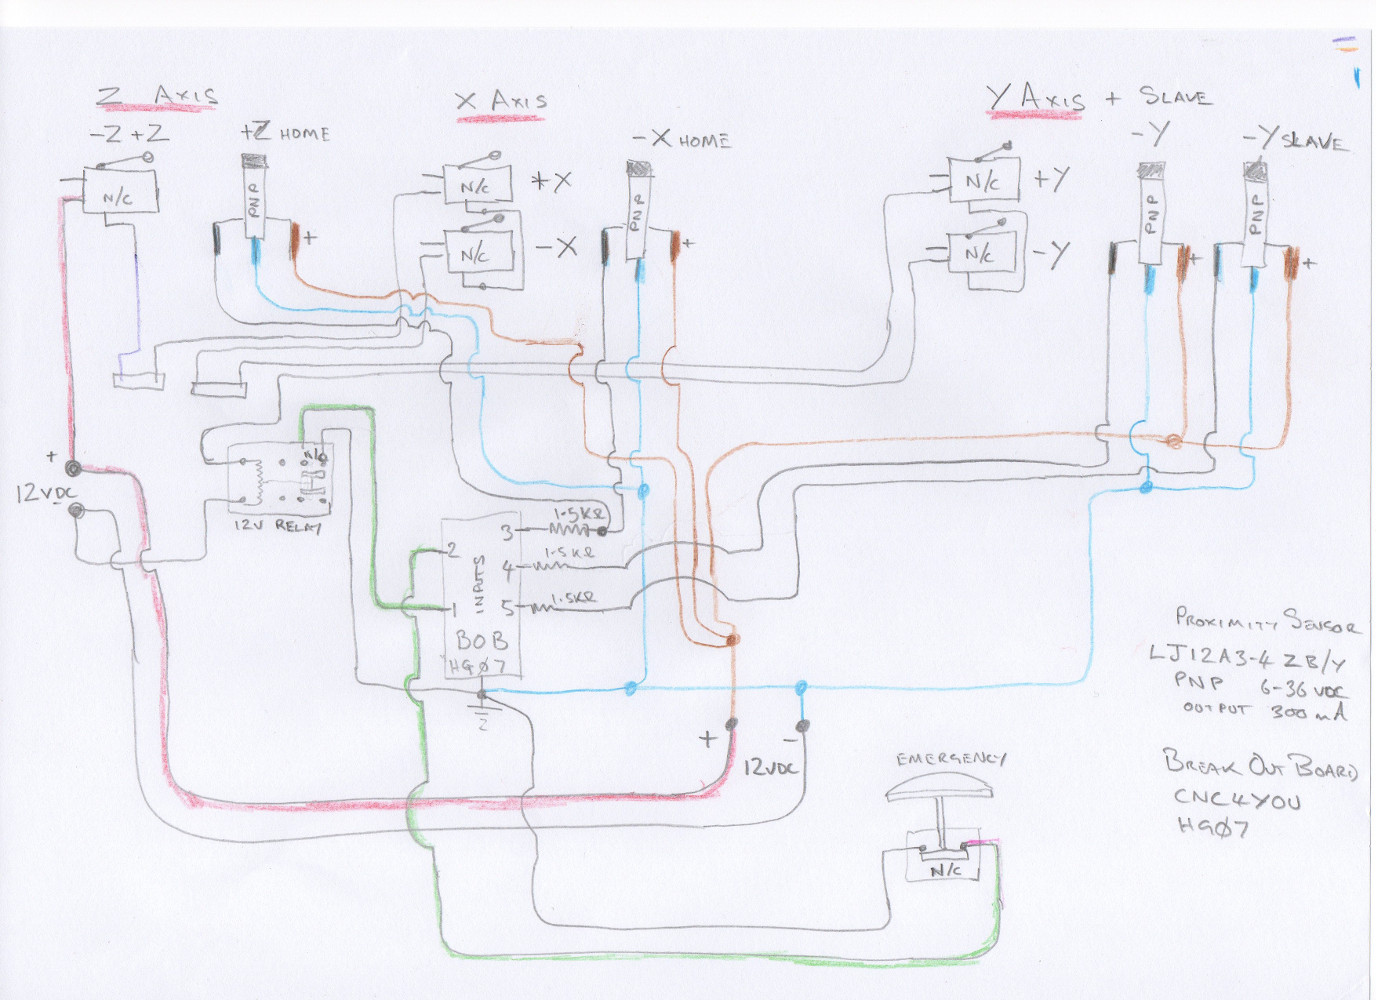 Z AXIS
X AXIS
Y AXIS + SLAVE
-Z +Z
+Z HOME
-X HOME
-Y
-Y SLAVE
N/C
PNP
+
N/C
+X
N/C
-X
PNP
+
N/C
+Y
N/C
-Y
PNP
+
PNP
+
+
12VDC
-
N/C
12V RELAY
INPUTS
BOB
HGØ7
2
1
3
4
5
1.5KΩ
1.5KΩ
1.5KΩ
+
-
12VDC
PROXIMITY SENSOR
LJ12A3-4ZB/Y
PNP 6-36 VDC
OUTPUT 300mA
EMERGENCY
N/C
BREAK OUT BOARD
CNC4YOU
HGØ7